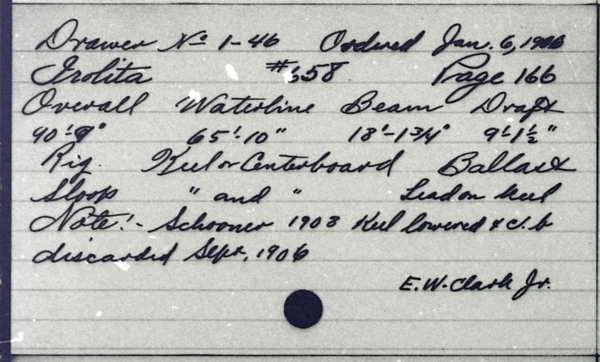 Drawer No 1-46 Ordered Jan. 6, 1906
Irolita #658 Page 166
Overall Waterline Beam Draft
90'-9" 65'-10" 18'-1 3/4" 9'-1 1/2"
Rig. Keel or Centerboard Ballast
Sloop " and " Lead on keel
Note:- Schooner 1908 Keel lowered & c.b
discarded Sept. 1906
E.W. Clark Jr.